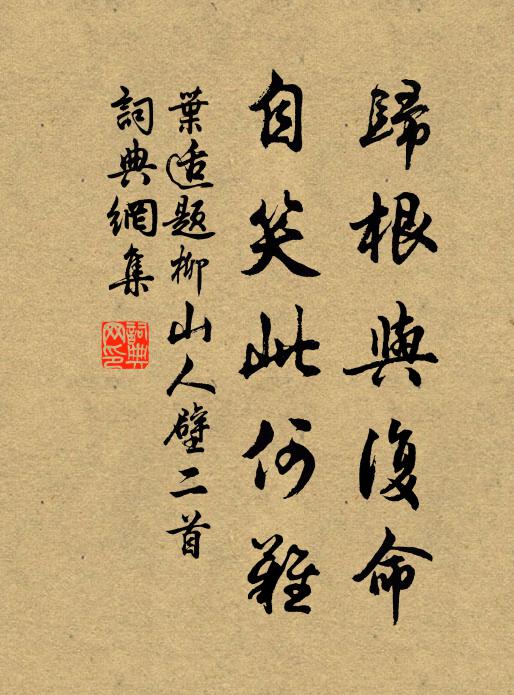 歸根與復命
自笑此何難
葉适題柳山人壁二首
詞典網集
詞典網印